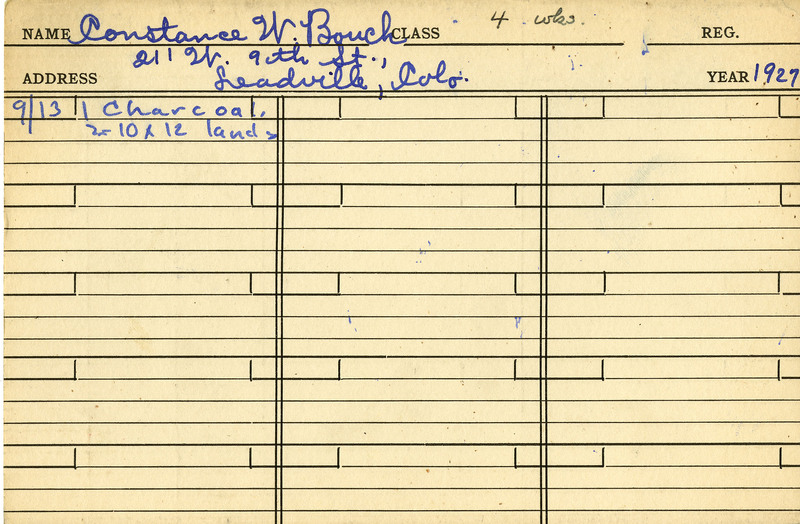 NAME Constance W. Bouck CLASS 4 wks. REG.
211 W. 9th St.,
ADDRESS Leadville, Colo. YEAR 1927
9/13 1 Charcoal.
2-10x12 lands